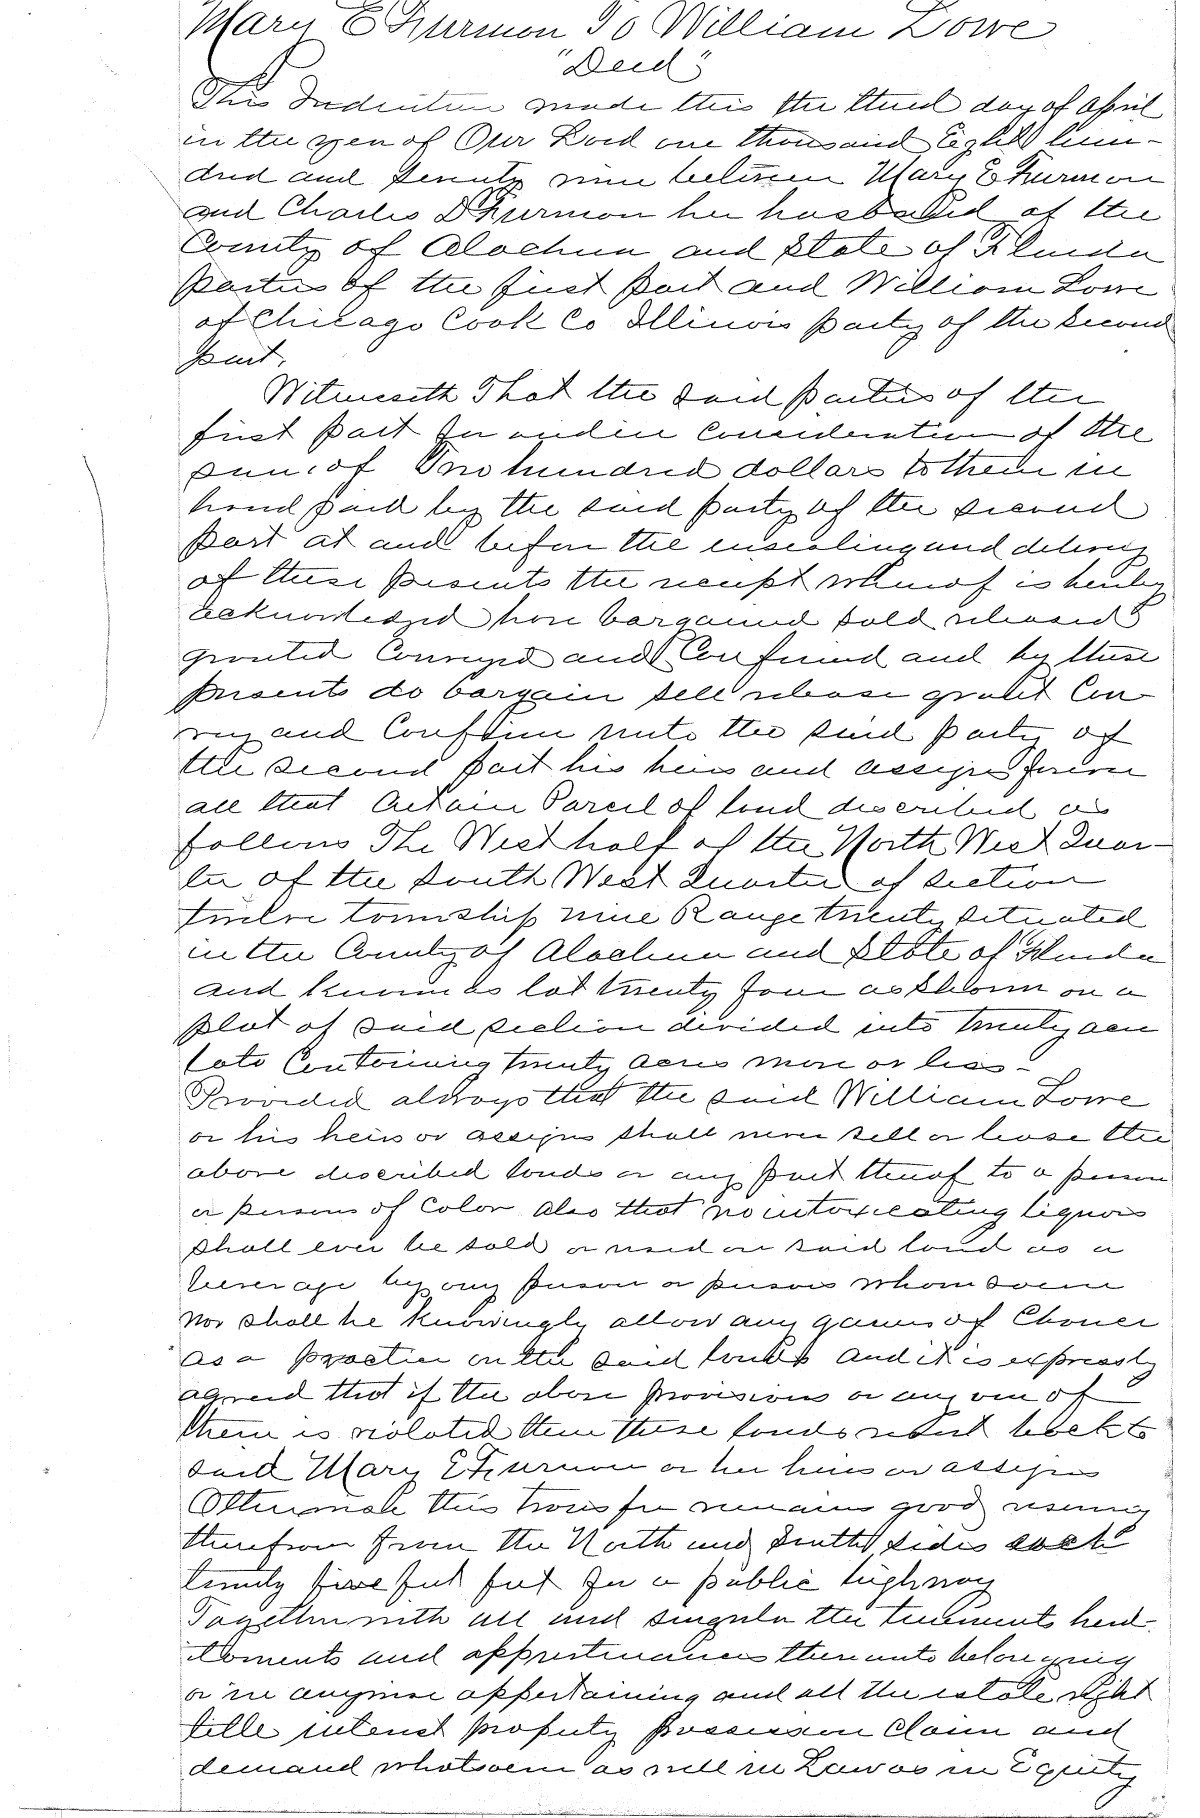 Mary E Furmon To William Lowe
"Deed"
This Indenture made this the third day of April
in the year of Our Lord one thousand Eight hun-
dred and seventy nine between Mary E Furmon
and Charles D Furmon her husband of the
County of Alachua and State of Florida
parties of the first part and William Lowe
of Chicago Cook Co Illinois party of the second
part.
Witnesseth That the said parties of the
first part for and in consideration of the
sum of Two hundred dollars to them in
hand paid by the said party of the second
part at and before the ensealing and delivery
of these presents the receipt whereof is hereby
acknowledged have bargained sold released
granted Conveyed and Confirmed and by these
presents do bargain sell release grant Con-
vey and Confirm unto the said party of
the second part his heirs and assigns forever
all that Certain Parcel of land described as
follows The West half of the North West Quar-
ter of the South West Quarter of section
twelve township nine Range twenty situated
in the County of Alachua and State of Florida
and known as lot twenty four as shown on a
plat of said section divided into twenty acre
lots Containing twenty acres more or less -
Provided always that the said William Lowe
or his heirs or assigns shall never sell or lease the
above described lands or any part thereof to a person
or persons of Color also that no intoxicating liquors
shall ever be sold or used on said land as a
beverage by any person or persons whomsoever
nor shall he knowingly allow any games of Chance
as a practice on the said lands and it is expressly
agreed that if the above provisions or any one of
them is violated then these lands revert back to
said Mary E Furmon or her heirs or assigns
Otherwise this transfer remains good reserving
therefrom from the North and South sides each
twenty five feet feet for a public highway
Together with all and singular the tenements hered-
itaments and appurtenances thereunto belonging
or in anywise appertaining and all the estate right
title interest property possession Claim and
demand whatsoever as well in Law as in Equity